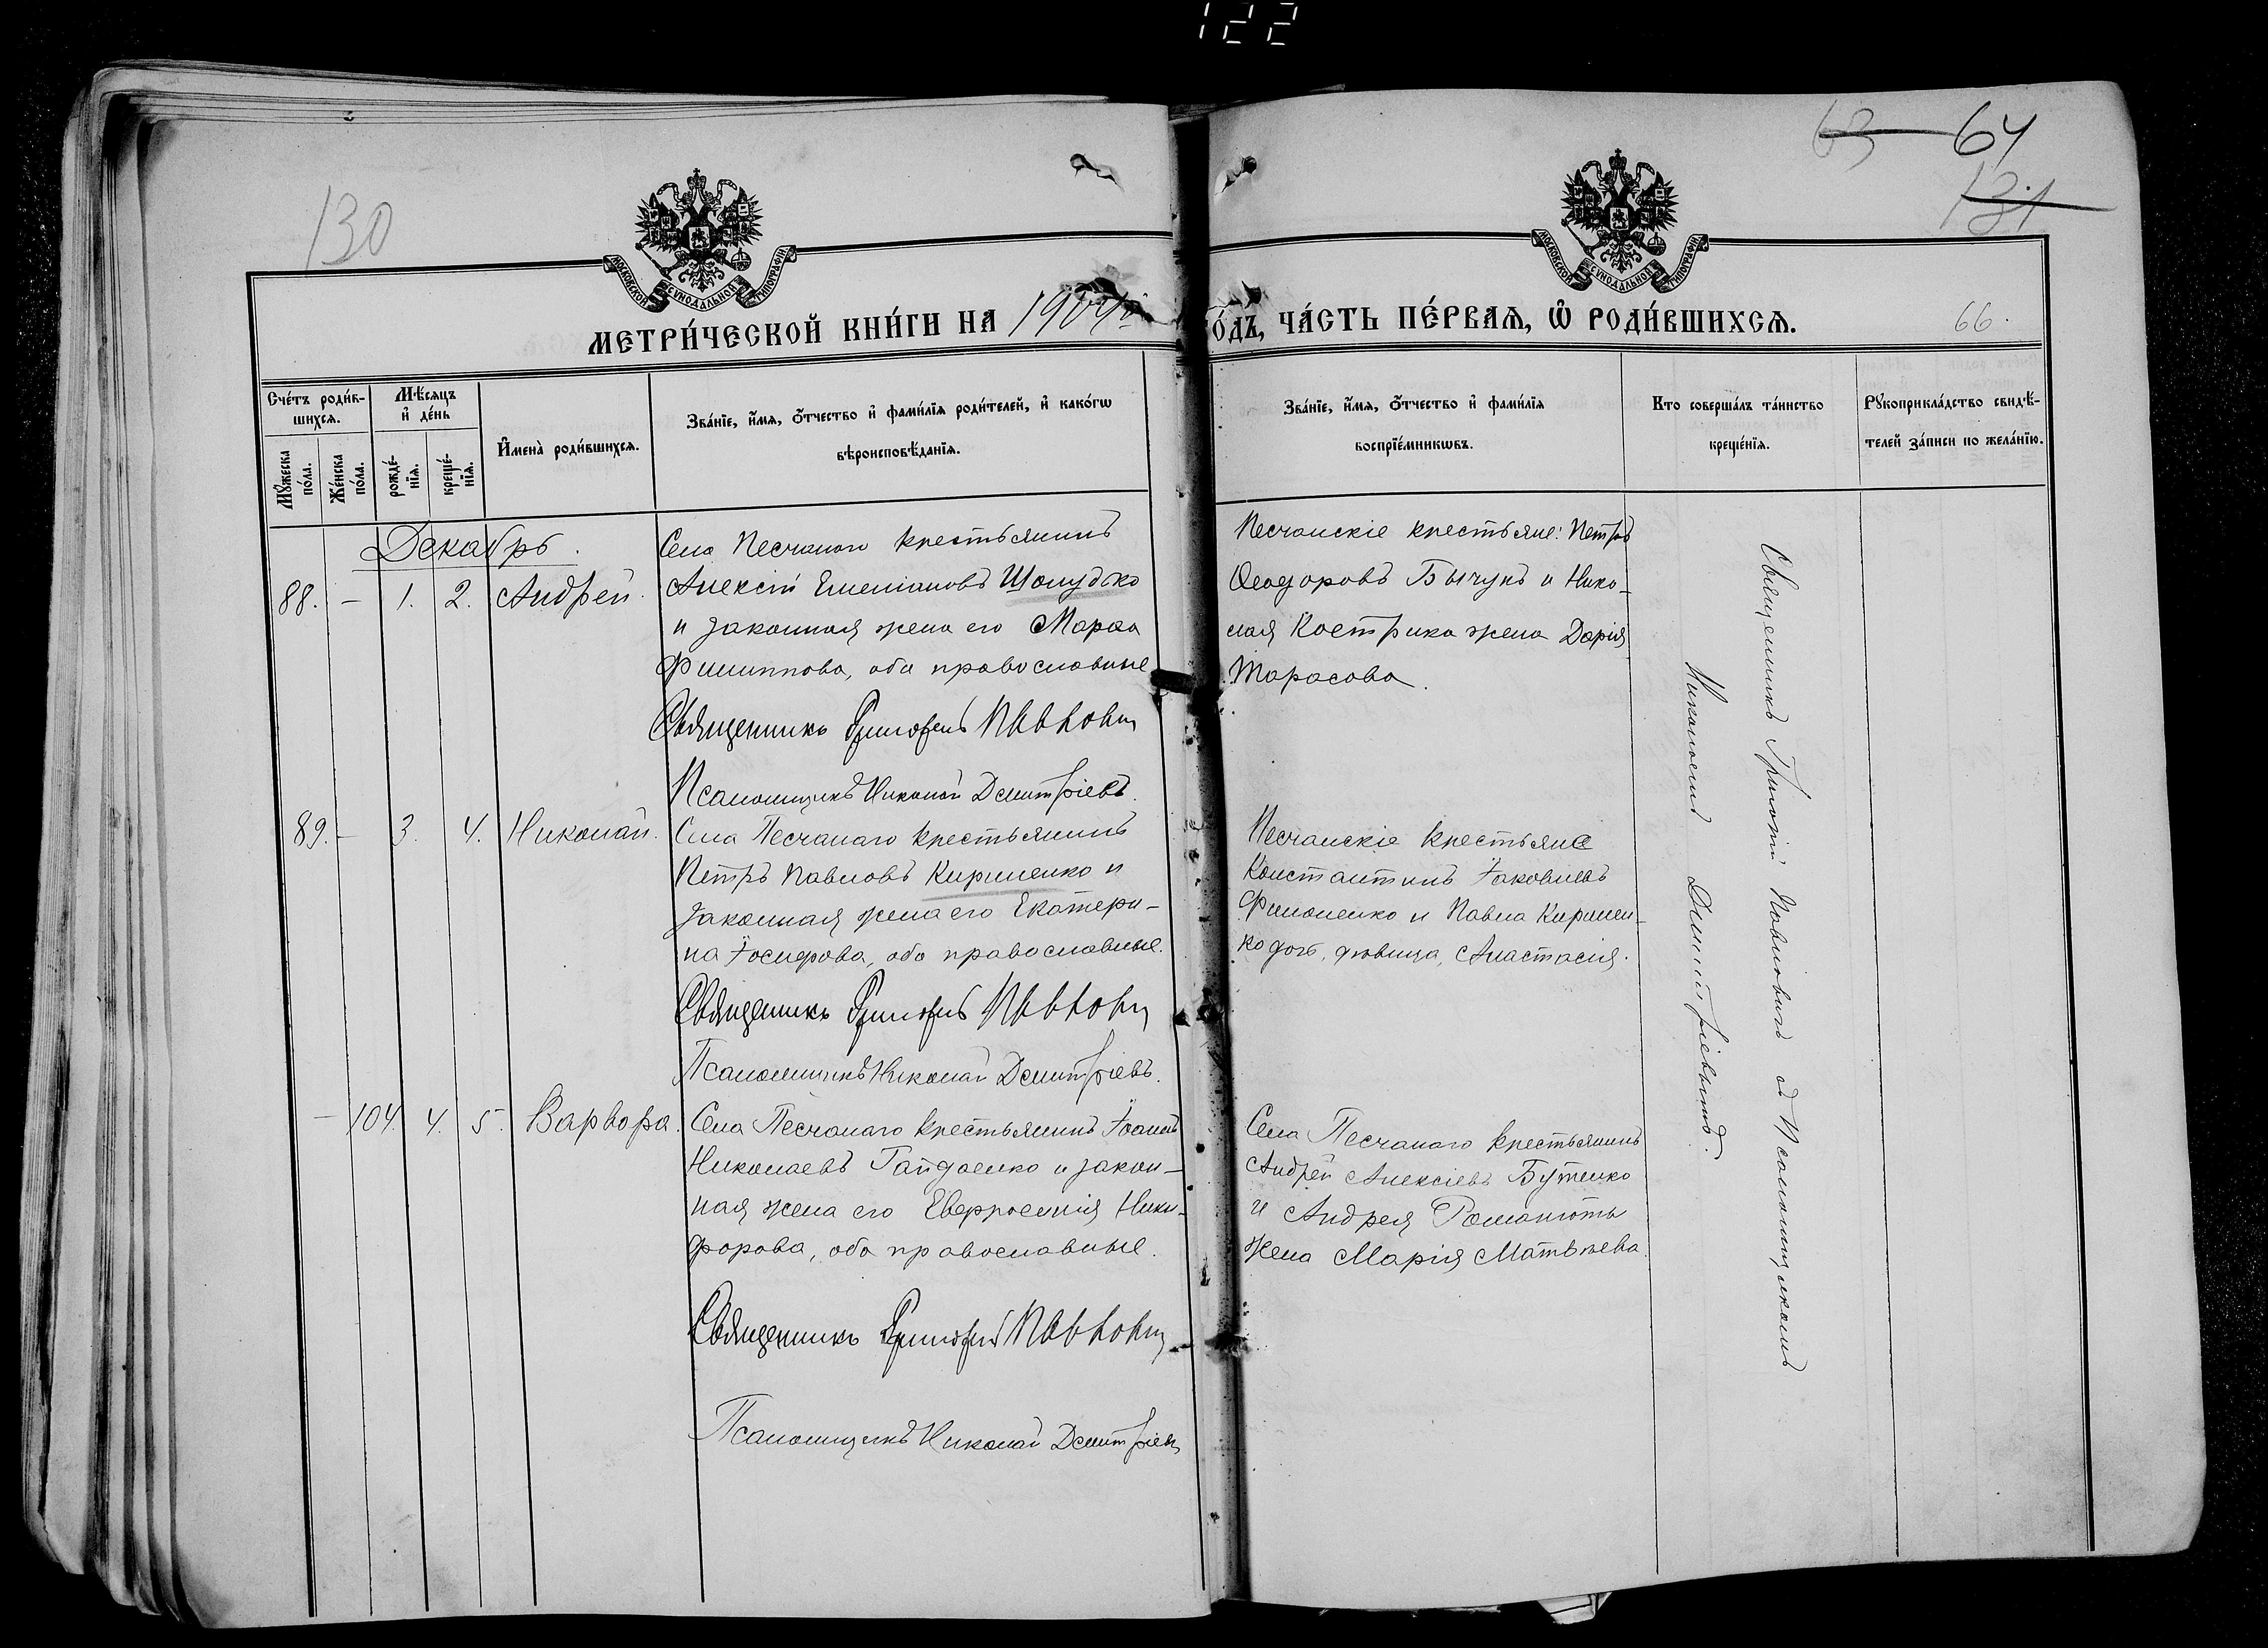 122
130
63 64
131
МОСКОВСКОЙ СѴНОДАЛЬНОЙ ТИПОГРАФІИ
МОСКОВСКОЙ СѴНОДАЛЬНОЙ ТИПОГРАФІИ
МЕТРИ́ЧЕСКОЙ КНИ́ГИ НА 1904
О́ДЪ, ЧА́СТЬ ПЕ́РВАѦ, Ѡ҆ РОДИ́ВШИХСѦ.
66.
Сче́тъ роди́в-
шихсѧ.
Мꙋ́жеска по́ла.
Же́нска по́ла.
Мѣ́сѧцъ
и҆ де́нь
рожде́-
нїѧ.
креще́-
нїѧ.
И҆мена̀ роди́вшихсѧ.
Зва́нїе, и҆́мѧ, ѻ҆́тчество и҆ фами́лїѧ роди́телей, и҆ како́гѡ
вѣроисповѣ́данїѧ.
Зва́нїе, и҆́мѧ, ѻ҆́тчество и҆ фами́лїѧ
воспрїе́мникѡвъ.
Кто соверша́лъ та́инство
креще́нїѧ.
Рꙋкоприкла́дство свидѣ́-
телей за́писи по жела́нїю.
Декабрь.
88. — 1. 2. Андрей.
Села Песчанаго крестьянинъ
Алексій Емеліановъ Шолудько
и законная жена его Марѳа
Филиппова, оба православные
Священникъ Григорій Павлович
Псаломщикъ Николай Демитріевъ.
Песчанскіе крестьяне: Петръ
Ѳеодоровъ Бычукъ и Нико-
лая Кострика жена Дарія
Тарасова.
89. — 3. 4. Николай.
Села Песчанаго крестьянинъ
Петръ Павловъ Кириленко и
законная жена его Екатери-
на Іосифова, оба православные.
Священникъ Григорій Павлович
Псаломщикъ Николай Демитріевъ.
Песчанскіе крестьяне
Константинъ Іаковлевъ
Филоненко и Павла Кирилен-
ко дочь, дѣвица, Анастасія.
— 104. 4. 5. Варвара.
Села Песчанаго крестьянинъ Іоаннъ
Николаевъ Гайдаенко и закон-
ная жена его Евфросинія Ники-
форова, оба православные.
Священникъ Григорій Павлович
Псаломщикъ Николай Демитріевъ
Села Песчанаго крестьянинъ
Андрей Алексіевъ Бутенко
и Андрея Романюты
жена Марія Матвѣева.
Священникъ Григорій Павловичъ съ Псаломщикомъ
Николаемъ Димитріевымъ.